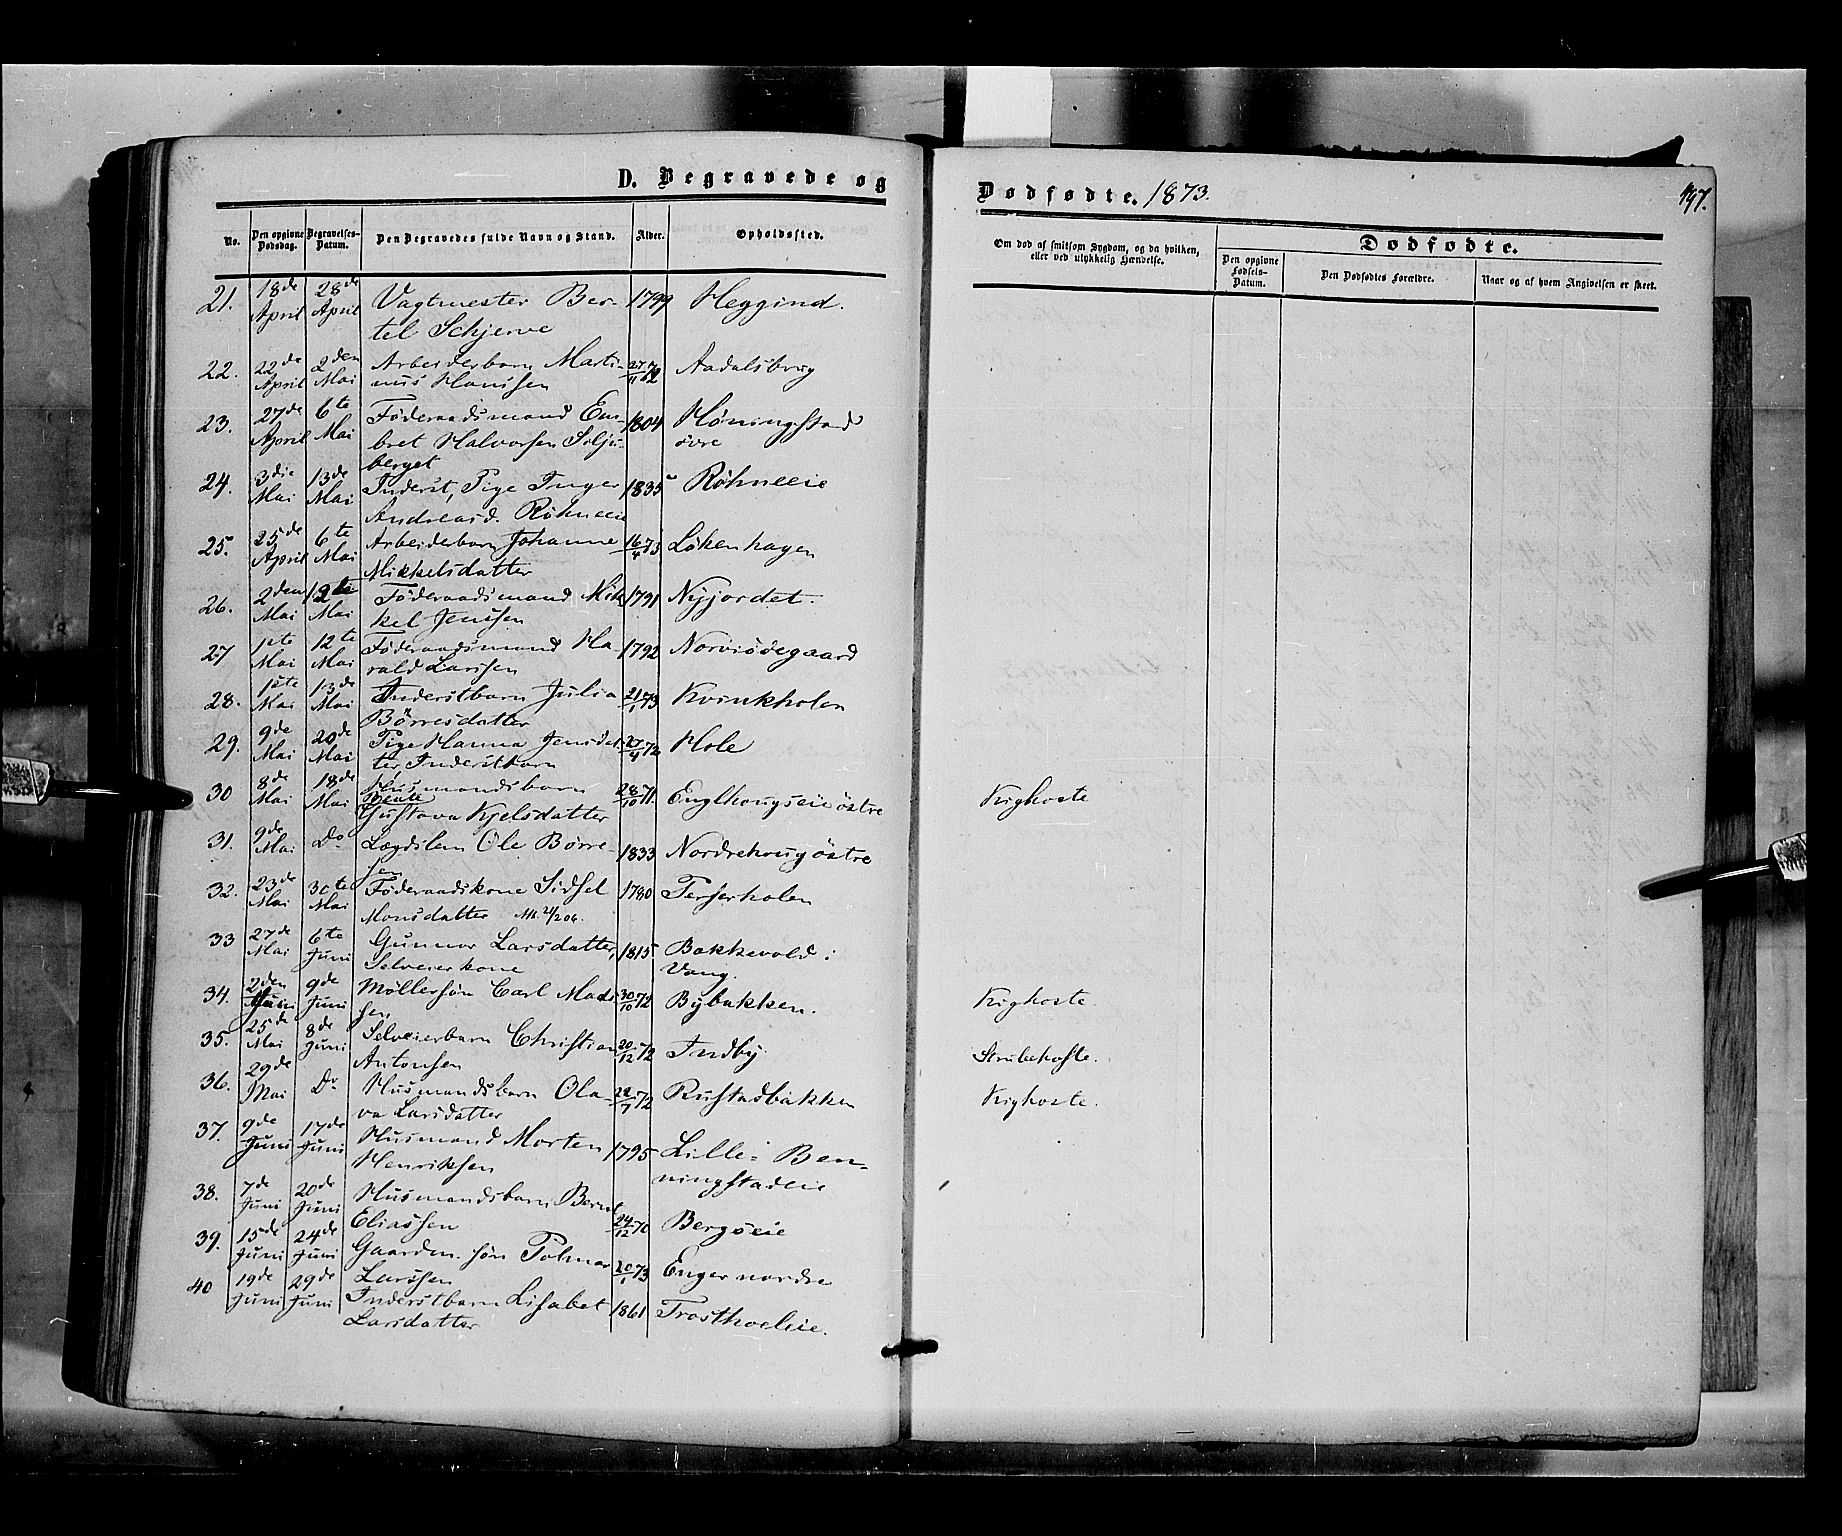 D. Begravede og
Dødfødte. 1873.
197.
No.
Den opgivne Dødsdag.
Begravelses-Datum.
Den Begravedes fulde Navn og Stand.
Alder.
Opholdssted.
Om død af smitsom Sygdom, og da hvilken,
eller ved ulykkelig Hændelse.
Dødfødte.
Den opgivne Fødsels-Datum.
Den Dødfødtes Forældre.
Naar og af hvem Angivelsen er skeet.
21. 18de April 28de April Vagtmester Ber- 1799 Heggind.
tel Schjerve
22. 22de April 2den Mai Arbeiderbarn Marti- 27/11 72 Aadalsbrug
nus Hanssen
23. 27de April 6te Mai Föderaadsmand Em- 1804 Høningstad
bret Halvorsen Solju- övre
berget
24. 3die Mai 13de Mai Inderst, Pige Inger 1835 Röhneeie
Andreasd. Röhneeie
25. 25de April 6te Mai Arbeiderbarn Johanne 16/4 73 Lökenhagen
Mikkelsdatter
26. 2den Mai 12te Mai Föderaadsmand Mik 1791 Nyjordet.
kel Jenssen
27 1ste Mai 12te Mai Föderaadsmand Ha- 1792 Norviödegaard
rald Larssen
28. 1ste Mai 13de Mai Inderstbarn Julia 21/1 73 Kvinkholen
Börresdatter
29. 9de Mai 20de Mai Pige Hanna Jensdat- 27/4 72 Hole
ter Inderstbarn
30 8de Mai 18de Mai Husmandsbarn 28/10 71. Englhougseie östre Kighoste
Beate
Gustava Kjelsdatter
31. 9de Mai Do Lægdslem Ole Börre- 1833 Nordrehougöstre
sen
32. 23de Mai 30te Mai Föderaadskone Sidsel 1780 Terserholen
Monsdatter
33 27de Mai 6te Juni Gunnor Larsdatter, 1815. Bakkevold i
Selveierkone Vang.
34. 2den Juni 9de Juni Möllersön Carl Mads 30/10 72 Bybakken. Kighoste.
sen
35. 25de Mai 8de Juni Selveierbarn Christian 20/12 72 Indby Strubehoste.
Antonsen
36. 29de Mai Do Husmandsbarn Ola- 22/7 72 Rustadbakken Kighoste.
va Larsdatter
37. 9de Juni 17de Juni Husmand Morten 1795 Lille- Ben-
Henriksen ningstadeie
38. 7de Juni 20de Juni Husmandsbarn Bernt
Eliassen 24/12 70 Bergseie
39. 15de Juni 24de Juni Gaardm. sön Polmar 20/1 73 Enger nordre
Larssen
40 19de Juni 29de Juni Inderstbarn Lisabet 1861 Trosthoeleie.
Larsdatter